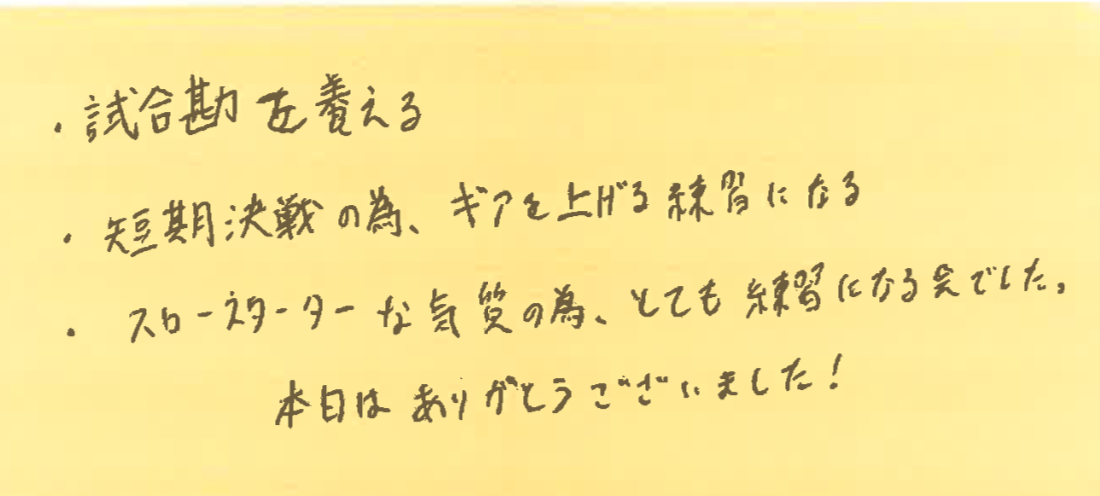 ・試合勘を養える
・短期決戦の為、ギアを上げる練習になる
・スロースターターな気質の為、とても練習になる会でした。
本日はありがとうございました！